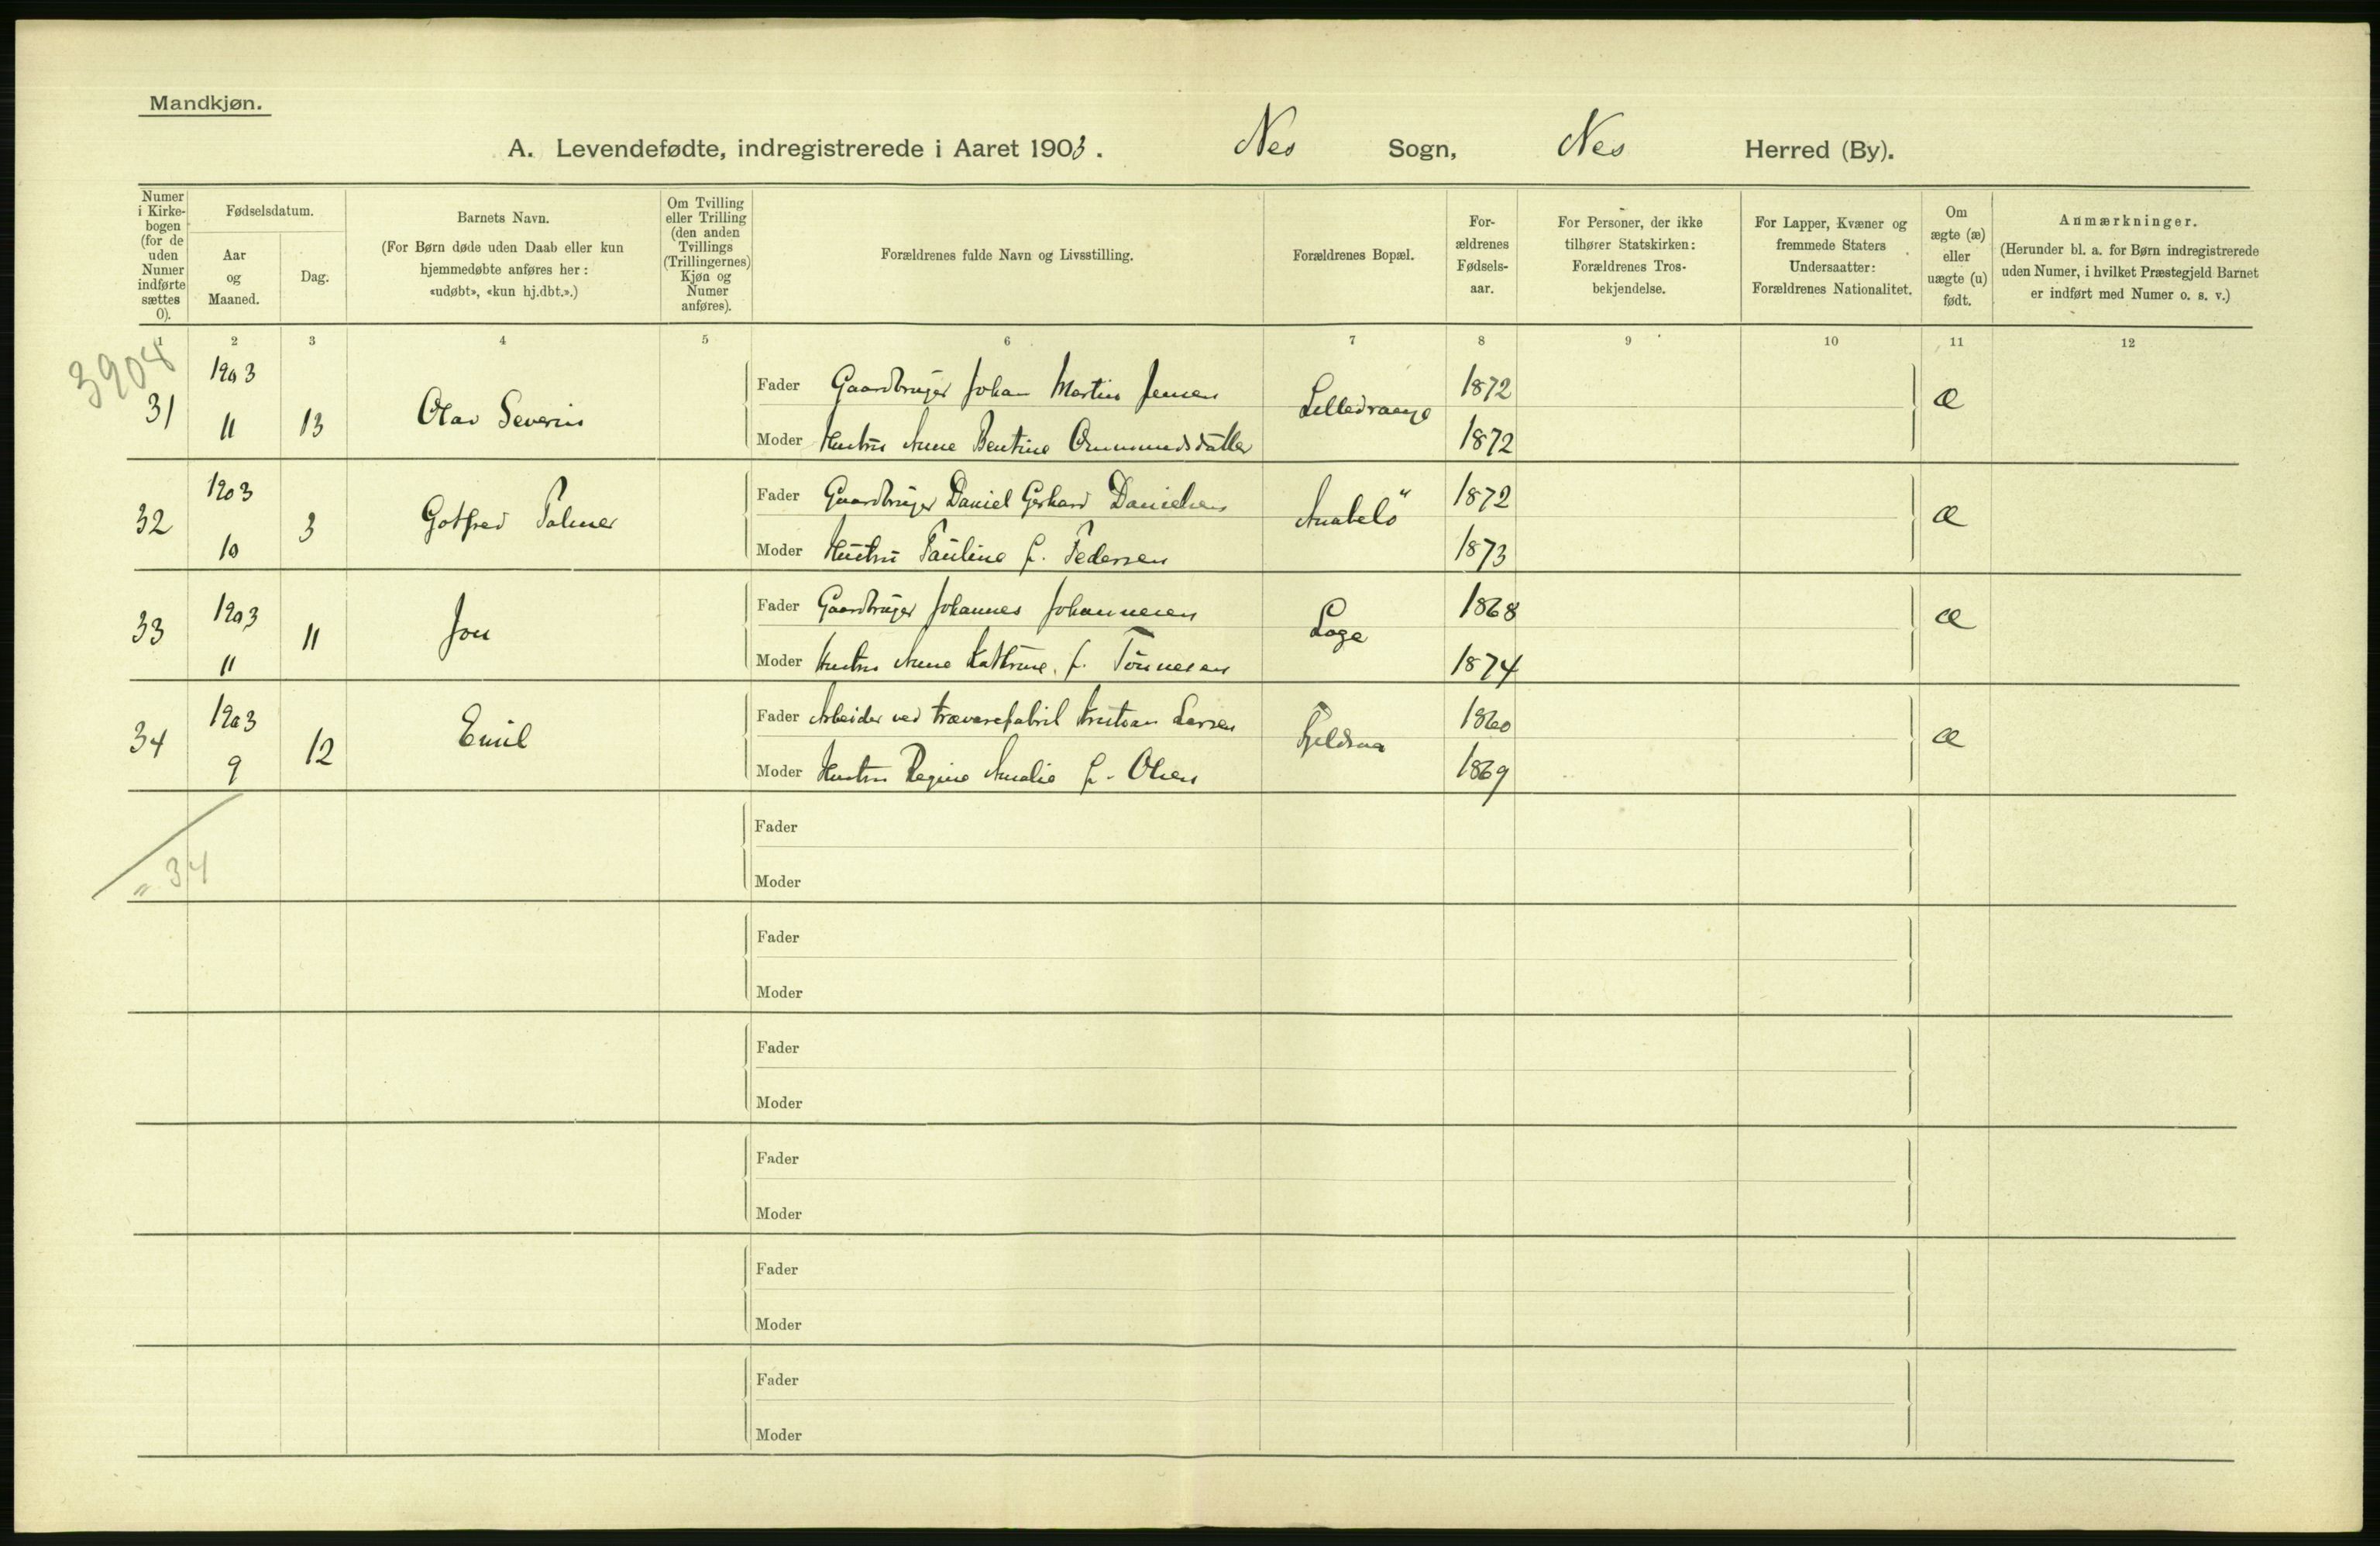 Mandkjøn.
A. Levendefødte, indregistrerede i Aaret 1903. Nes Sogn, Nes Herred (By).
Numer i Kirkebogen (for de uden Numer indførte sættes 0).
Fødselsdatum.
Aar og Maaned.
Dag.
Barnets Navn.
(For Børn døde uden Daab eller kun
hjemmedøbte anføres her:
«udøbt», «kun hj.dbt.».)
Om Tvilling
eller Trilling
(den anden
Tvillings
(Trillingernes)
Kjøn og
Numer
anføres).
Forældrenes fulde Navn og Livsstilling.
Forældrenes Bopæl.
For-
ældrenes
Fødsels-
aar.
For Personer, der ikke
tilhører Statskirken:
Forældrenes Tros-
bekjendelse.
For Lapper, Kvæner og
fremmede Staters
Undersaatter:
Forældrenes Nationalitet.
Om
ægte (æ)
eller
uægte (u)
født.
Anmærkninger.
(Herunder bl. a. for Børn indregistrerede
uden Numer, i hvilket Præstegjeld Barnet
er indført med Numer o. s. v.)
1 2 3 4 5 6 7 8 9 10 11 12
3904
31 1903 11 13 Olav Severin
Fader Gaardbruger Johan Martin Jensen 1872 æ
Moder Hustru Anne Bentine 1872
32 1903 10 3 Gotfred Palmer
Fader Gaardbruger Daniel Gerhard Danielsen Anabelö 1872 æ
Moder Hustru Pauline f. Pedersen 1873
33 1903 11 11 Jon
Fader Gaardbruger Johannes Johannesen Loge 1868 æ
Moder Hustru Anne Kathrine f. Tönnesen 1874
34 1903 9 12 Emil
Fader Arbeider ved trævarefabrik Kristian Larsen 1860 æ
Moder Hustru Regine Amalie f. Olsen 1869
" 34
Fader
Moder
Fader
Moder
Fader
Moder
Fader
Moder
Fader
Moder
Fader
Moder